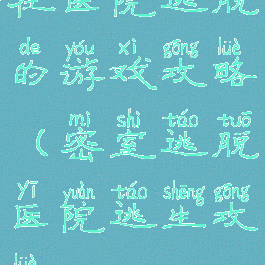 在医院逃脱
de yóu xì gōng lüè
的游戏攻略
mì shì táo tuō
(密室逃脱
yī yuàn táo shēng gōng
医院逃生攻
lüè